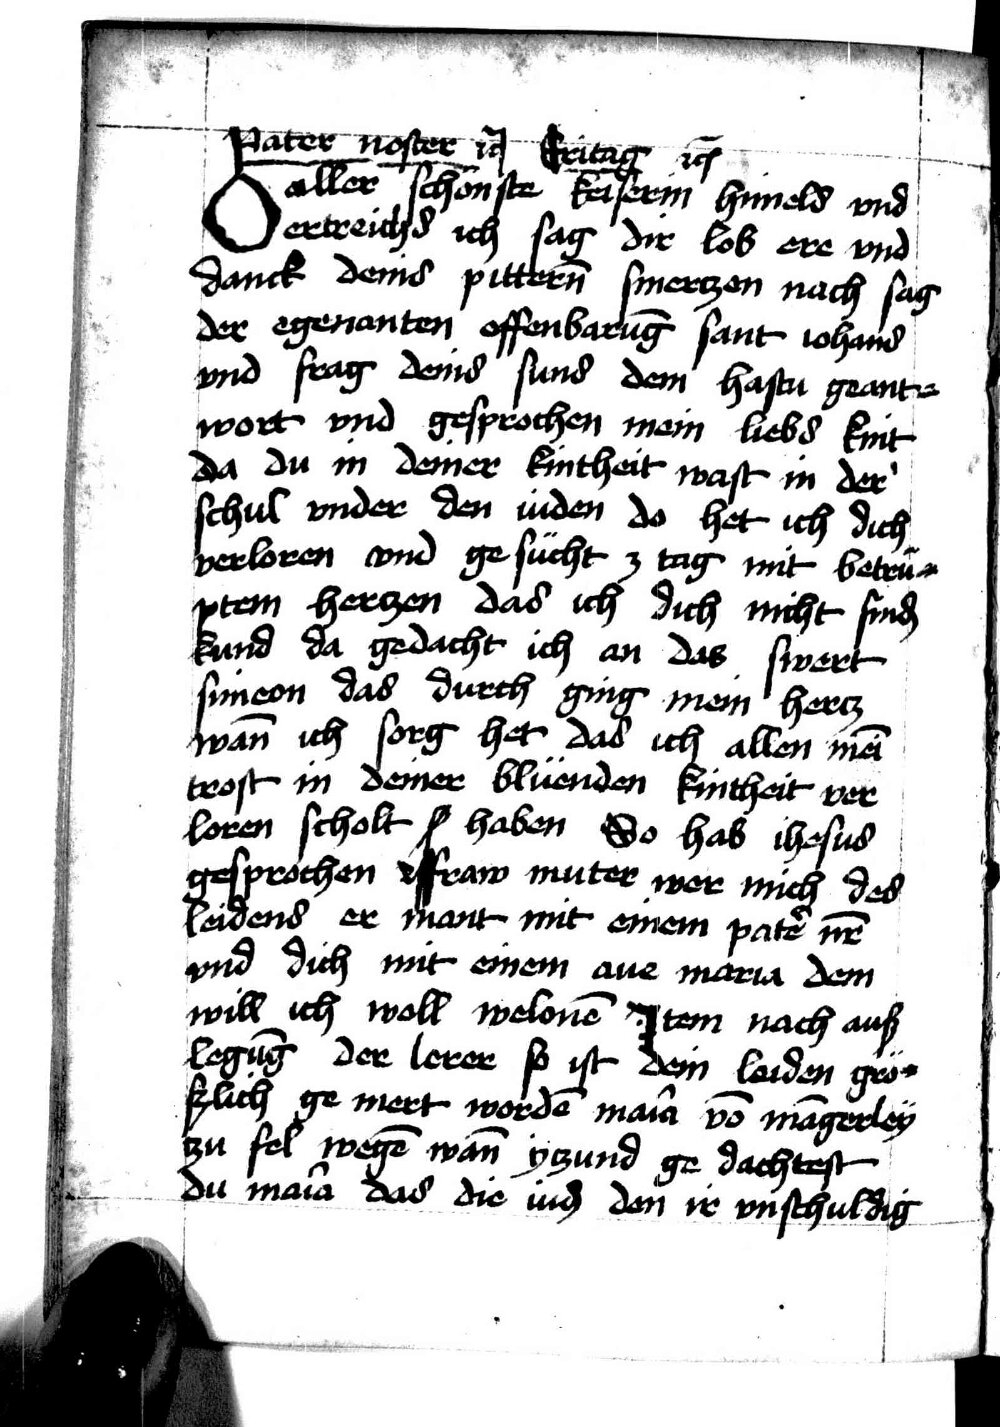 Pater noster ic̄ Eritag ic̄
O aller schönste keiserin himels vnd
ertreichs ich sag dir lob ere vnd
danck deins pittern̄ smerczen nach sag
der egenanten offenbarūg sant iohans
vnd frag deins suns dem hastu geant⸗
wort vnd gesprochen mein liebs kint
da du in deiner kintheit wast in der
schul vnder den iuden do het ich dich
verloren vnd ge sücht 3 tag mit betrü⸗
ptem herczen das ich dich nicht find
kund da gedacht ich an das swert
simeon das durch ging mein hercz
wan̄ ich sorg het das ich allen meī
trost in deiner blüenden kintheit ver
loren scholt haben So hab ihesus
gesprochen fraw muter wer mich des
leidens er mant mit einem pater̄ nr̄e
vnd dich mit einem aue maria dem
will ich woll welonē Item nach ausz
legūg der lerer so ist dein leiden grö⸗
szlich ge mert wordē maīa vō māgerley
zu fel wegē wan̄ yczund ge dachtest
du maīa das die iud den ir vnschuldig